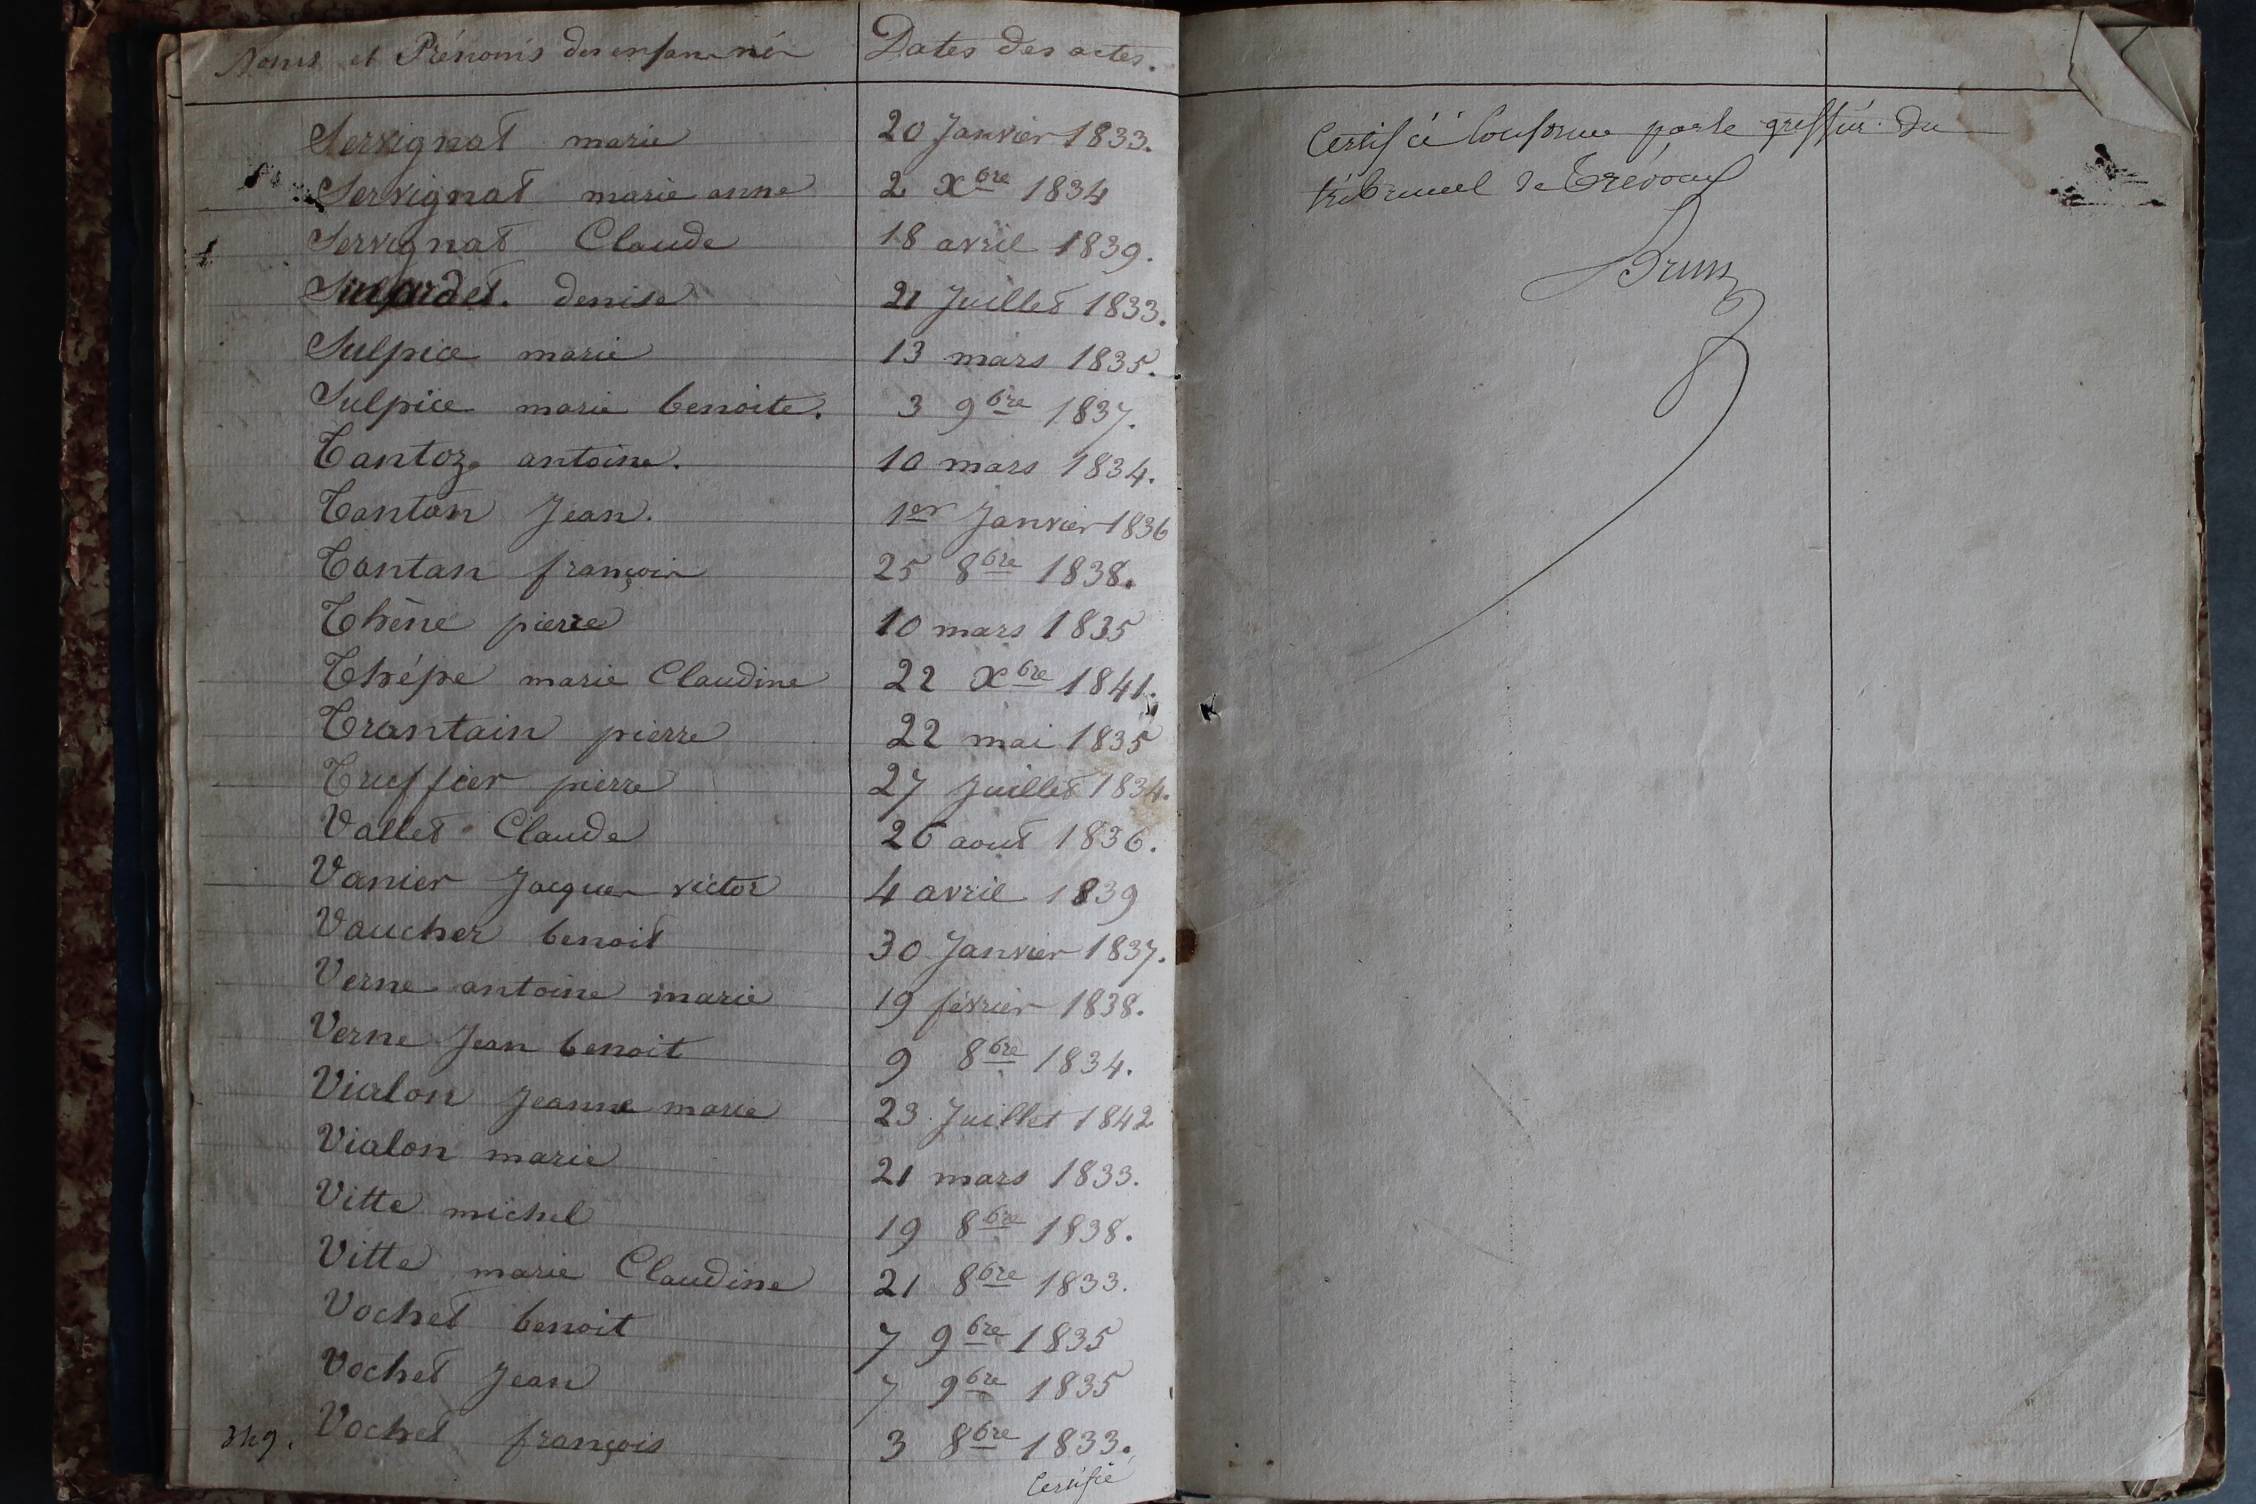 Noms et Prénoms des enfans nés Dates des actes.
Servignat marie 20 Janvier 1833.
Servignat marie anne 2 Xbre 1834
Servignat Claude 18 avril 1839.
denise 21 Juillet 1833.
Sulpice marie 13 mars 1835.
Sulpice marie benoite. 3 9bre 1837.
Tantoz antoine. 10 mars 1834.
Tantan Jean. 1er Janvier 1836
Tantan françois 25 8bre 1838.
Thène pierre 10 mars 1835
Thépe marie Claudine 22 Xbre 1841.
Trantain pierre 22 mai 1835
Trueffier pierre 27 Juillet 1834.
Vallet Claude 26 aout 1836.
Vanier Jacques victor 4 avril 1839
Vaucher benoit 30 Janvier 1837.
Verne antoine marie 19 février 1838.
Verne Jean benoit 9 8bre 1834.
Vialon Jeanne marie 23 Juillet 1842
Vialon marie 21 mars 1833.
Vitte michel 19 8bre 1838.
Vitte marie Claudine 21 8bre 1833.
Vochet benoit 7 9bre 1835
Vochet Jean 7 9bre 1835
349. Vochet françois 3 8bre 1833.
Certifié
Certifié Conforme par le greffier du
tribunal de Trévoux
Brun